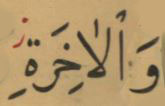 وَالْاٰخِرَةِ